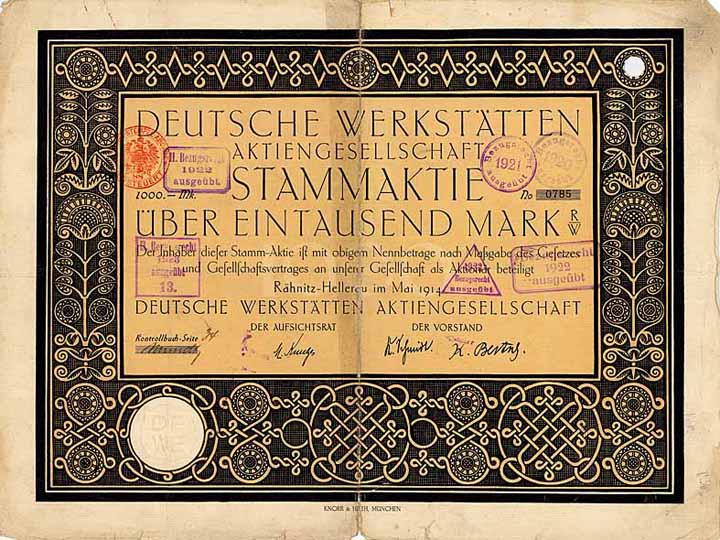 DEUTSCHE WERKSTÄTTEN
AKTIENGESELLSCHAFT
II. Bezugsrecht
1922
ausgeübt
Bezugsrecht
1921
ausgeübt
1000.— Mk.
STAMMAKTIE
No 0785
ÜBER EINTAUSEND MARK R/W
Der Inhaber dieser Stamm-Aktie ist mit obigem Nennbetrage nach Maßgabe des Gesetzes
und Gesellschaftsvertrages an unserer Gesellschaft als Aktionär beteiligt
Bezugsrecht
ausgeübt
13.
1922
Bezugsrecht
ausgeübt
1922
ausgeübt
Rähnitz-Hellerau im Mai 1914
DEUTSCHE WERKSTÄTTEN AKTIENGESELLSCHAFT
DER AUFSICHTSRAT DER VORSTAND
Kontrollbuch-Seite
K. Schmidt. K. Bertsch.
DE
WE
KNORR & HIRTH, MÜNCHEN